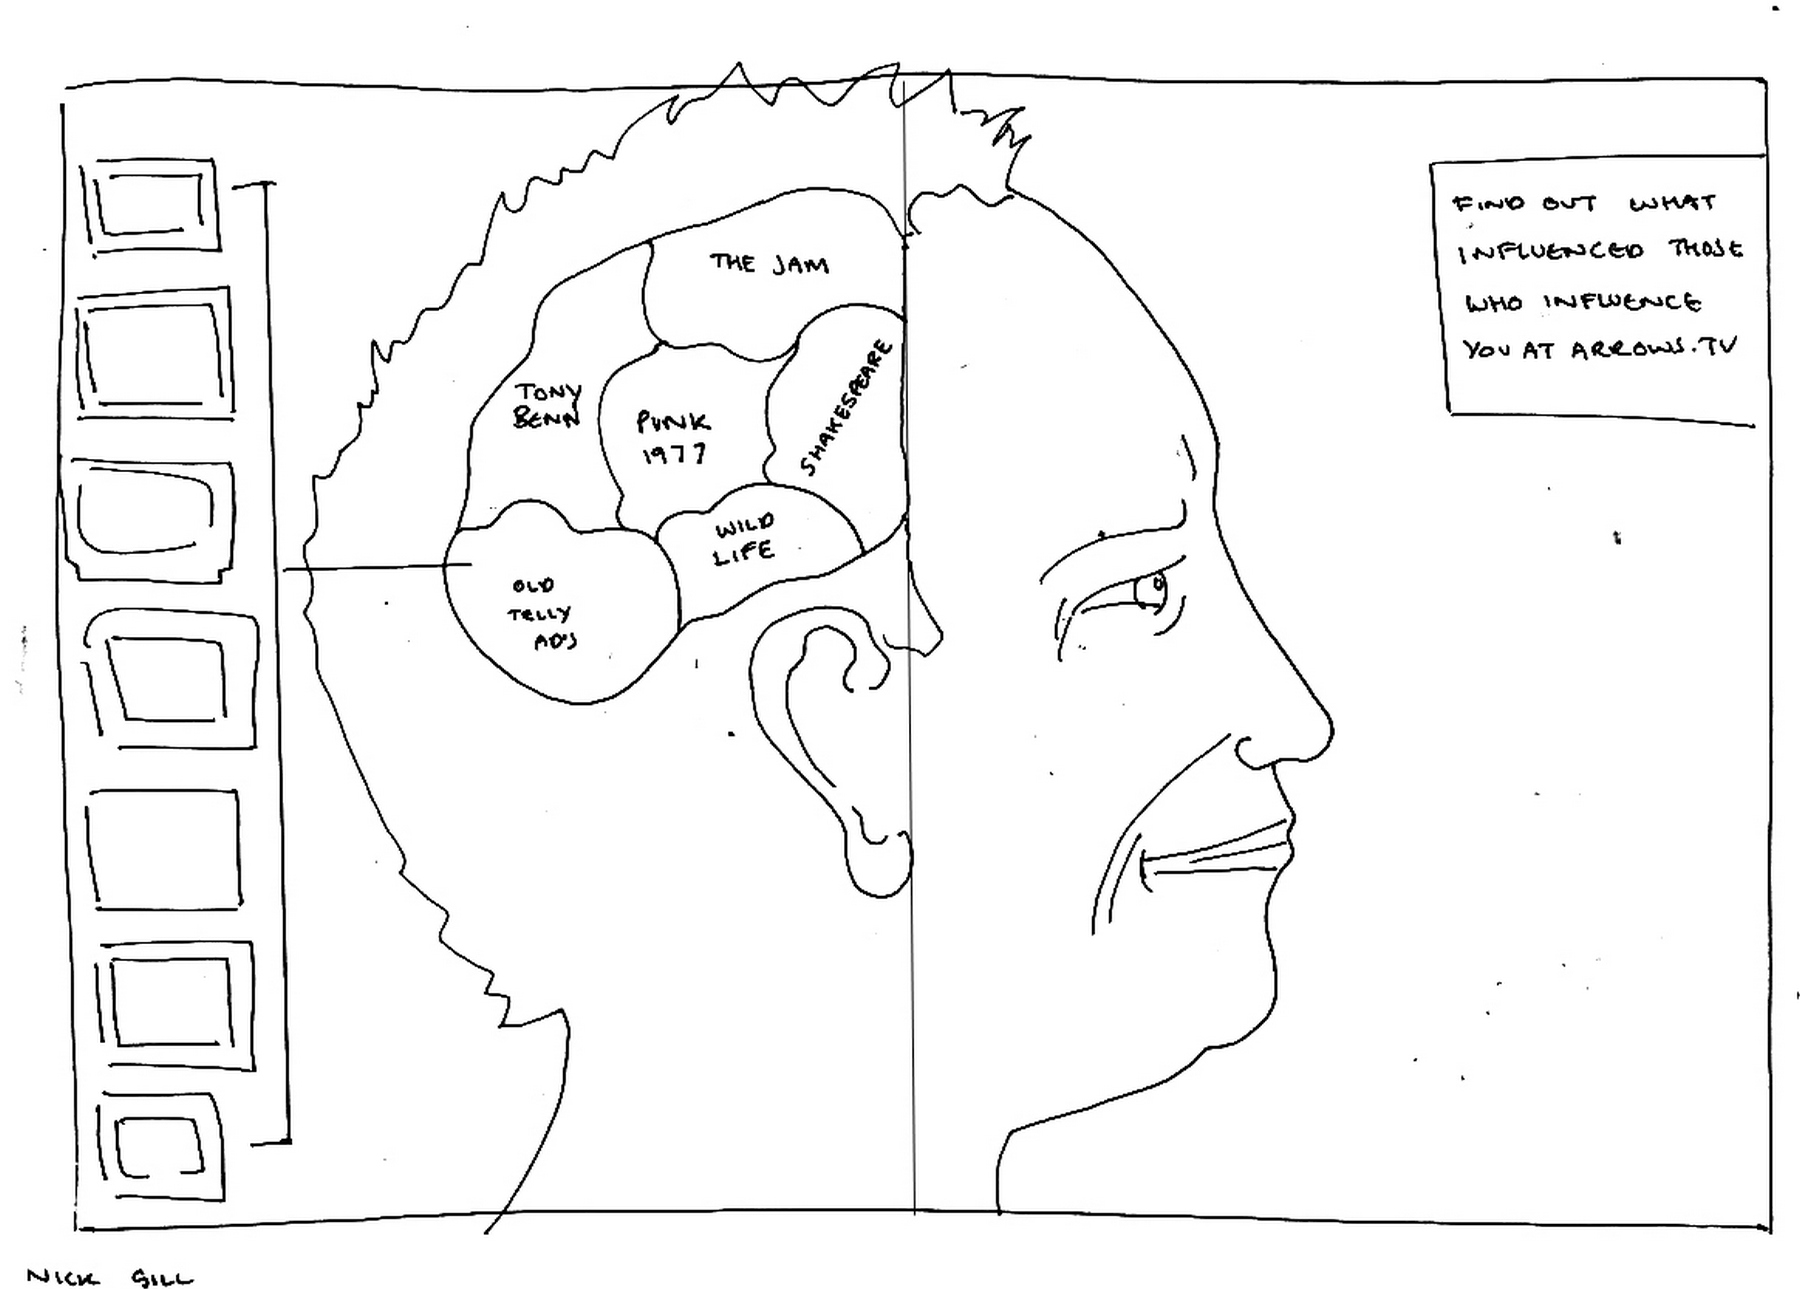 THE JAM
TONY
BENN
PUNK
1977
SHAKESPEARE
WILD
LIFE
OLD
TELLY
AD'S
FIND OUT WHAT
INFLUENCED THOSE
WHO INFLUENCE
YOU AT ARROWS.TV
NICK GILL